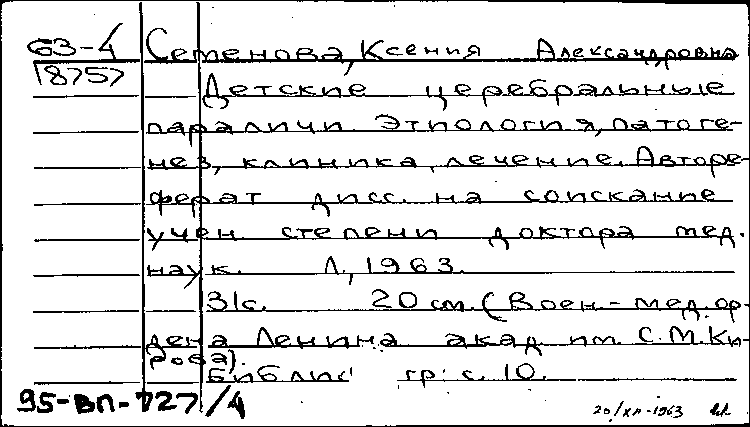 63-4 Семенова, Ксения Александровна
18757 Детские церебральные
параличи. Этиология, патоге-
нез, клиника, лечение. Авторе-
ферат дисс. на соискание
учен. степени доктора мед.
наук. Л., 1963.
31с. 20 см. (Воен.-мед. ор-
дена Ленина акад. им. С.М. Ки-
рова).
Библиогр: с. 10.
95-ВП-727/4
20/XII-1963